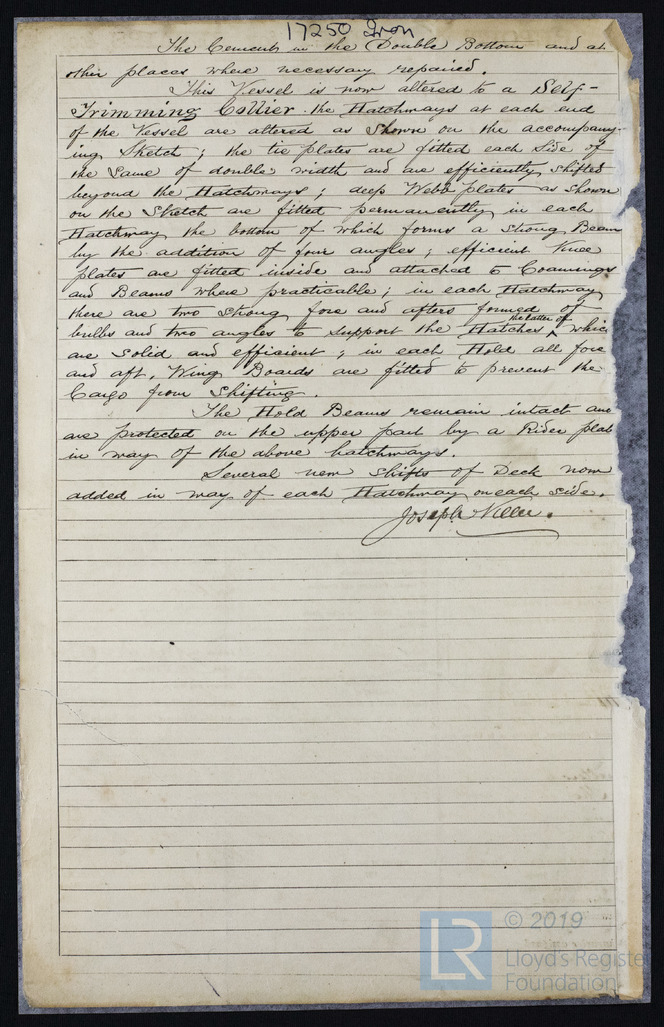 17250 Iron
The Cement in the Double Bottom and at
other places where necessary repaired.
This Vessel is now altered to a Self-
Trimming Collier. the Hatchways at each end
of the Vessel are altered as shown on the accompany-
ing Sketch; the tie plates are fitted each side of
the same of double width and are efficiently shifted
beyond the Hatchways; deep Webb plates as shown
on the Sketch are fitted permanently in each
Hatchway the bottom of which forms a strong Beam
by the addition of four angles; efficient Knee
plates are fitted inside and attached to Coamings
and Beams where practicable; in each Hatchway
there are two strong fore and afters formed of
bulbs and two angles to support the Hatches, the latter of which
are solid and efficient; in each Hold all fore
and aft, Wing Boards are fitted to prevent the
Cargo from shifting.
The Hold Beams remain intact and
are protected on the upper part by a Rider plat
in way of the above hatchways.
Several new shifts of Deck now
added in way of each Hatchway on each side.
Joseph
LR © 2019
Lloyd's Register
Foundation